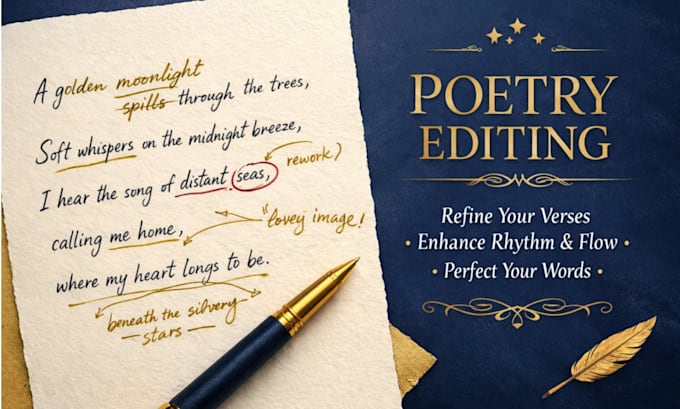 A golden moonlight
spills through the trees,
Soft whispers on the midnight breeze,
I hear the song of distant seas,
rework)
calling me home,
"lovey image!
where my heart longs to be.
beneath the silvery
stars
POETRY
EDITING
Refine Your Verses
• Enhance Rhythm & Flow •
• Perfect Your Words •